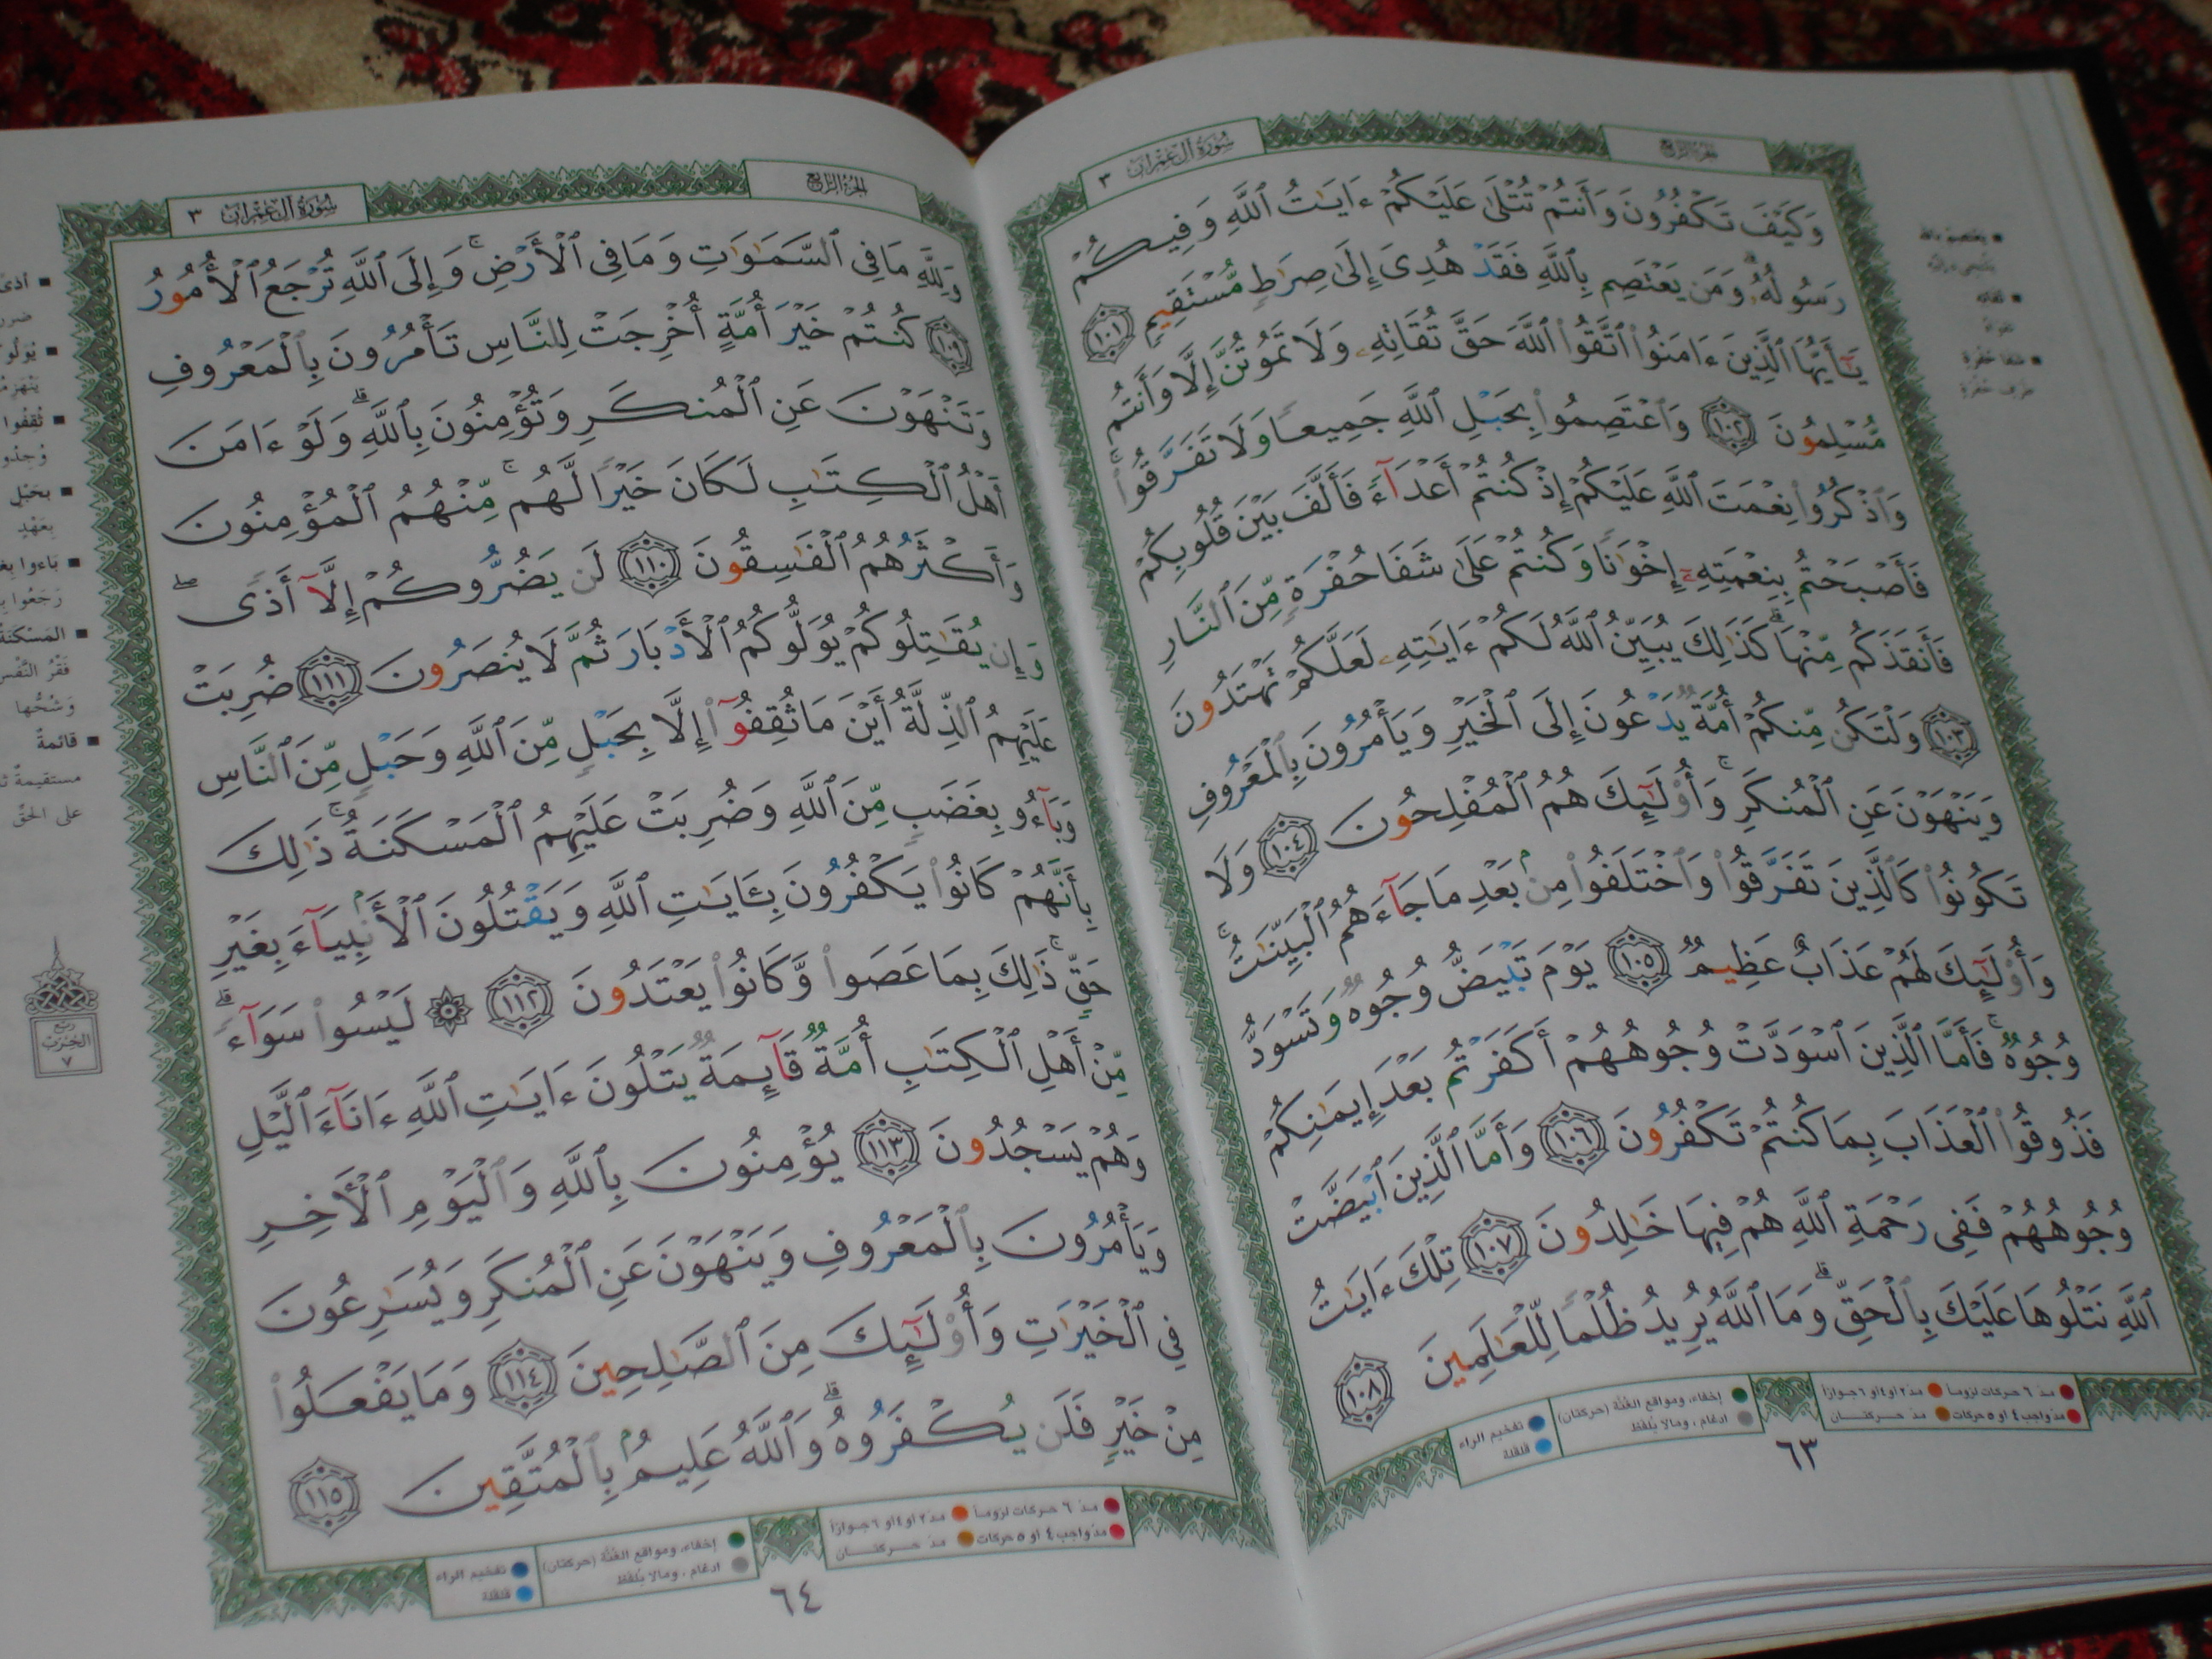 سُورَةُ آلِ عِمْرَان ٣
الجُزْءُ الرَّابِع
وَكَيْفَ تَكْفُرُونَ وَأَنتُمْ تُتْلَىٰ عَلَيْكُمْ ءَايَٰتُ ٱللَّهِ وَفِيكُمْ
رَسُولُهُۥ ۗ وَمَن يَعْتَصِم بِٱللَّهِ فَقَدْ هُدِىَ إِلَىٰ صِرَٰطٍ مُّسْتَقِيمٍ ١٠١
يَٰٓأَيُّهَا ٱلَّذِينَ ءَامَنُوا۟ ٱتَّقُوا۟ ٱللَّهَ حَقَّ تُقَاتِهِۦ وَلَا تَمُوتُنَّ إِلَّا وَأَنتُم
مُّسْلِمُونَ ١٠٢ وَٱعْتَصِمُوا۟ بِحَبْلِ ٱللَّهِ جَمِيعًا وَلَا تَفَرَّقُوا۟ ۚ
وَٱذْكُرُوا۟ نِعْمَتَ ٱللَّهِ عَلَيْكُمْ إِذْ كُنتُمْ أَعْدَآءً فَأَلَّفَ بَيْنَ قُلُوبِكُمْ
فَأَصْبَحْتُم بِنِعْمَتِهِۦٓ إِخْوَٰنًا وَكُنتُمْ عَلَىٰ شَفَا حُفْرَةٍ مِّنَ ٱلنَّارِ
فَأَنقَذَكُم مِّنْهَا ۗ كَذَٰلِكَ يُبَيِّنُ ٱللَّهُ لَكُمْ ءَايَٰتِهِۦ لَعَلَّكُمْ تَهْتَدُونَ
١٠٣ وَلْتَكُن مِّنكُمْ أُمَّةٌ يَدْعُونَ إِلَى ٱلْخَيْرِ وَيَأْمُرُونَ بِٱلْمَعْرُوفِ
وَيَنْهَوْنَ عَنِ ٱلْمُنكَرِ ۚ وَأُو۟لَٰٓئِكَ هُمُ ٱلْمُفْلِحُونَ ١٠٤ وَلَا
تَكُونُوا۟ كَٱلَّذِينَ تَفَرَّقُوا۟ وَٱخْتَلَفُوا۟ مِنۢ بَعْدِ مَا جَآءَهُمُ ٱلْبَيِّنَٰتُ ۚ
وَأُو۟لَٰٓئِكَ لَهُمْ عَذَابٌ عَظِيمٌ ١٠٥ يَوْمَ تَبْيَضُّ وُجُوهٌ وَتَسْوَدُّ
وُجُوهٌ ۚ فَأَمَّا ٱلَّذِينَ ٱسْوَدَّتْ وُجُوهُهُمْ أَكَفَرْتُم بَعْدَ إِيمَٰنِكُمْ
فَذُوقُوا۟ ٱلْعَذَابَ بِمَا كُنتُمْ تَكْفُرُونَ ١٠٦ وَأَمَّا ٱلَّذِينَ ٱبْيَضَّتْ
وُجُوهُهُمْ فَفِى رَحْمَةِ ٱللَّهِ هُمْ فِيهَا خَٰلِدُونَ ١٠٧ تِلْكَ ءَايَٰتُ
ٱللَّهِ نَتْلُوهَا عَلَيْكَ بِٱلْحَقِّ ۗ وَمَا ٱللَّهُ يُرِيدُ ظُلْمًا لِّلْعَٰلَمِينَ ١٠٨
مدّ ٦ حركات لزوماً مدّ ٢ أو ٤ أو ٦ جوازاً
مدّ واجب ٤ أو ٥ حركات مدّ حركتان
إخفاء، ومواقع الغُنَّة (حركتان)
ادغام، ومالا يُلفَظ
تفخيم الراء
قلقلة
٦٣
الجُزْءُ الرَّابِع
سُورَةُ آلِ عِمْرَان ٣
وَلِلَّهِ مَا فِى ٱلسَّمَٰوَٰتِ وَمَا فِى ٱلْأَرْضِ ۚ وَإِلَى ٱللَّهِ تُرْجَعُ ٱلْأُمُورُ
١٠٩ كُنتُمْ خَيْرَ أُمَّةٍ أُخْرِجَتْ لِلنَّاسِ تَأْمُرُونَ بِٱلْمَعْرُوفِ
وَتَنْهَوْنَ عَنِ ٱلْمُنكَرِ وَتُؤْمِنُونَ بِٱللَّهِ ۗ وَلَوْ ءَامَنَ
أَهْلُ ٱلْكِتَٰبِ لَكَانَ خَيْرًا لَّهُم ۚ مِّنْهُمُ ٱلْمُؤْمِنُونَ
وَأَكْثَرُهُمُ ٱلْفَٰسِقُونَ ١١٠ لَن يَضُرُّوكُمْ إِلَّآ أَذًى ۖ
وَإِن يُقَٰتِلُوكُمْ يُوَلُّوكُمُ ٱلْأَدْبَارَ ثُمَّ لَا يُنصَرُونَ ١١١ ضُرِبَتْ
عَلَيْهِمُ ٱلذِّلَّةُ أَيْنَ مَا ثُقِفُوٓا۟ إِلَّا بِحَبْلٍ مِّنَ ٱللَّهِ وَحَبْلٍ مِّنَ ٱلنَّاسِ
وَبَآءُو بِغَضَبٍ مِّنَ ٱللَّهِ وَضُرِبَتْ عَلَيْهِمُ ٱلْمَسْكَنَةُ ۚ ذَٰلِكَ
بِأَنَّهُمْ كَانُوا۟ يَكْفُرُونَ بِـَٔايَٰتِ ٱللَّهِ وَيَقْتُلُونَ ٱلْأَنۢبِيَآءَ بِغَيْرِ
حَقٍّ ۚ ذَٰلِكَ بِمَا عَصَوا۟ وَّكَانُوا۟ يَعْتَدُونَ ١١٢ ۞ لَيْسُوا۟ سَوَآءً ۗ
مِّنْ أَهْلِ ٱلْكِتَٰبِ أُمَّةٌ قَآئِمَةٌ يَتْلُونَ ءَايَٰتِ ٱللَّهِ ءَانَآءَ ٱلَّيْلِ
وَهُمْ يَسْجُدُونَ ١١٣ يُؤْمِنُونَ بِٱللَّهِ وَٱلْيَوْمِ ٱلْأَخِرِ
وَيَأْمُرُونَ بِٱلْمَعْرُوفِ وَيَنْهَوْنَ عَنِ ٱلْمُنكَرِ وَيُسَٰرِعُونَ
فِى ٱلْخَيْرَٰتِ وَأُو۟لَٰٓئِكَ مِنَ ٱلصَّٰلِحِينَ ١١٤ وَمَا يَفْعَلُوا۟
مِنْ خَيْرٍ فَلَن يُكْفَرُوهُ ۗ وَٱللَّهُ عَلِيمٌۢ بِٱلْمُتَّقِينَ ١١٥
بَاءوا
رَجَعُوا
المَسْكَنَة
فَقْرُ النَّفْس
وَشُحُّها
قائمةٌ
مستقيمةٌ
على الحقّ
ربع
الحزب
٧
مدّ ٦ حركات لزوماً مدّ ٢ أو ٤ أو ٦ جوازاً
مدّ واجب ٤ أو ٥ حركات مدّ حركتان
إخفاء، ومواقع الغُنَّة (حركتان)
ادغام، ومالا يُلفَظ
تفخيم الراء
قلقلة
٦٤